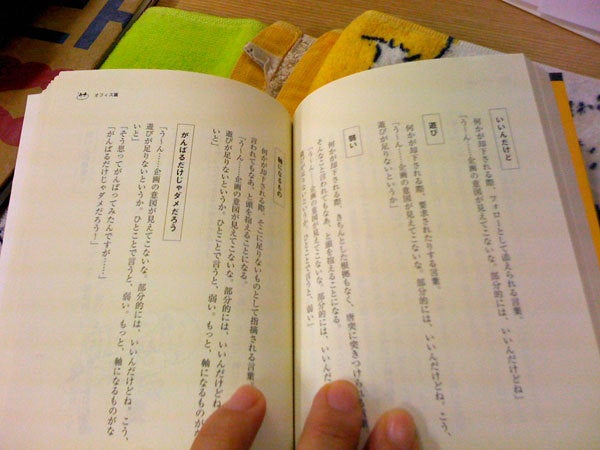 いいんだけど
何かが却下される際、フォローとして添えられる言葉。
「う〜ん……企画の意図が見えてこないな。部分的には、いいんだけどね」
遊び
何かが却下される際、要求されたりする言葉。
「う〜ん……企画の意図が見えてこないな。部分的には、いいんだけどね。こう、
遊びが足りないというか」
弱い
何かが却下される際、きちんとした根拠もなく、唐突に突きつけられる
そんなこと言われてもなあ、と頭を抱えることになる。
「う〜ん……企画の意図が見えてこないな。部分的には、いいんだ
遊びが足りないというか、ひとことで言うと、弱い」
軸になるもの
何かが却下される際、そこに足りないものとして指摘される言葉。
言われてもなあ、と頭を抱えることになる。
「う〜ん……企画の意図が見えてこないな。部分的には、いいんだけどね。こう、
遊びが足りないというか、ひとことで言うと、弱い。もっと、軸になるものがな
いと」
がんばるだけじゃダメだろう
「う〜ん……企画の意図が見えてこないな。部分的には、いいんだけどね。こう、
遊びが足りないというか、ひとことで言うと、弱い。もっと、軸になるものがな
いと」
「そう思ってがんばってみたんですが……」
「がんばるだけじゃダメだろう！」
オフィス篇